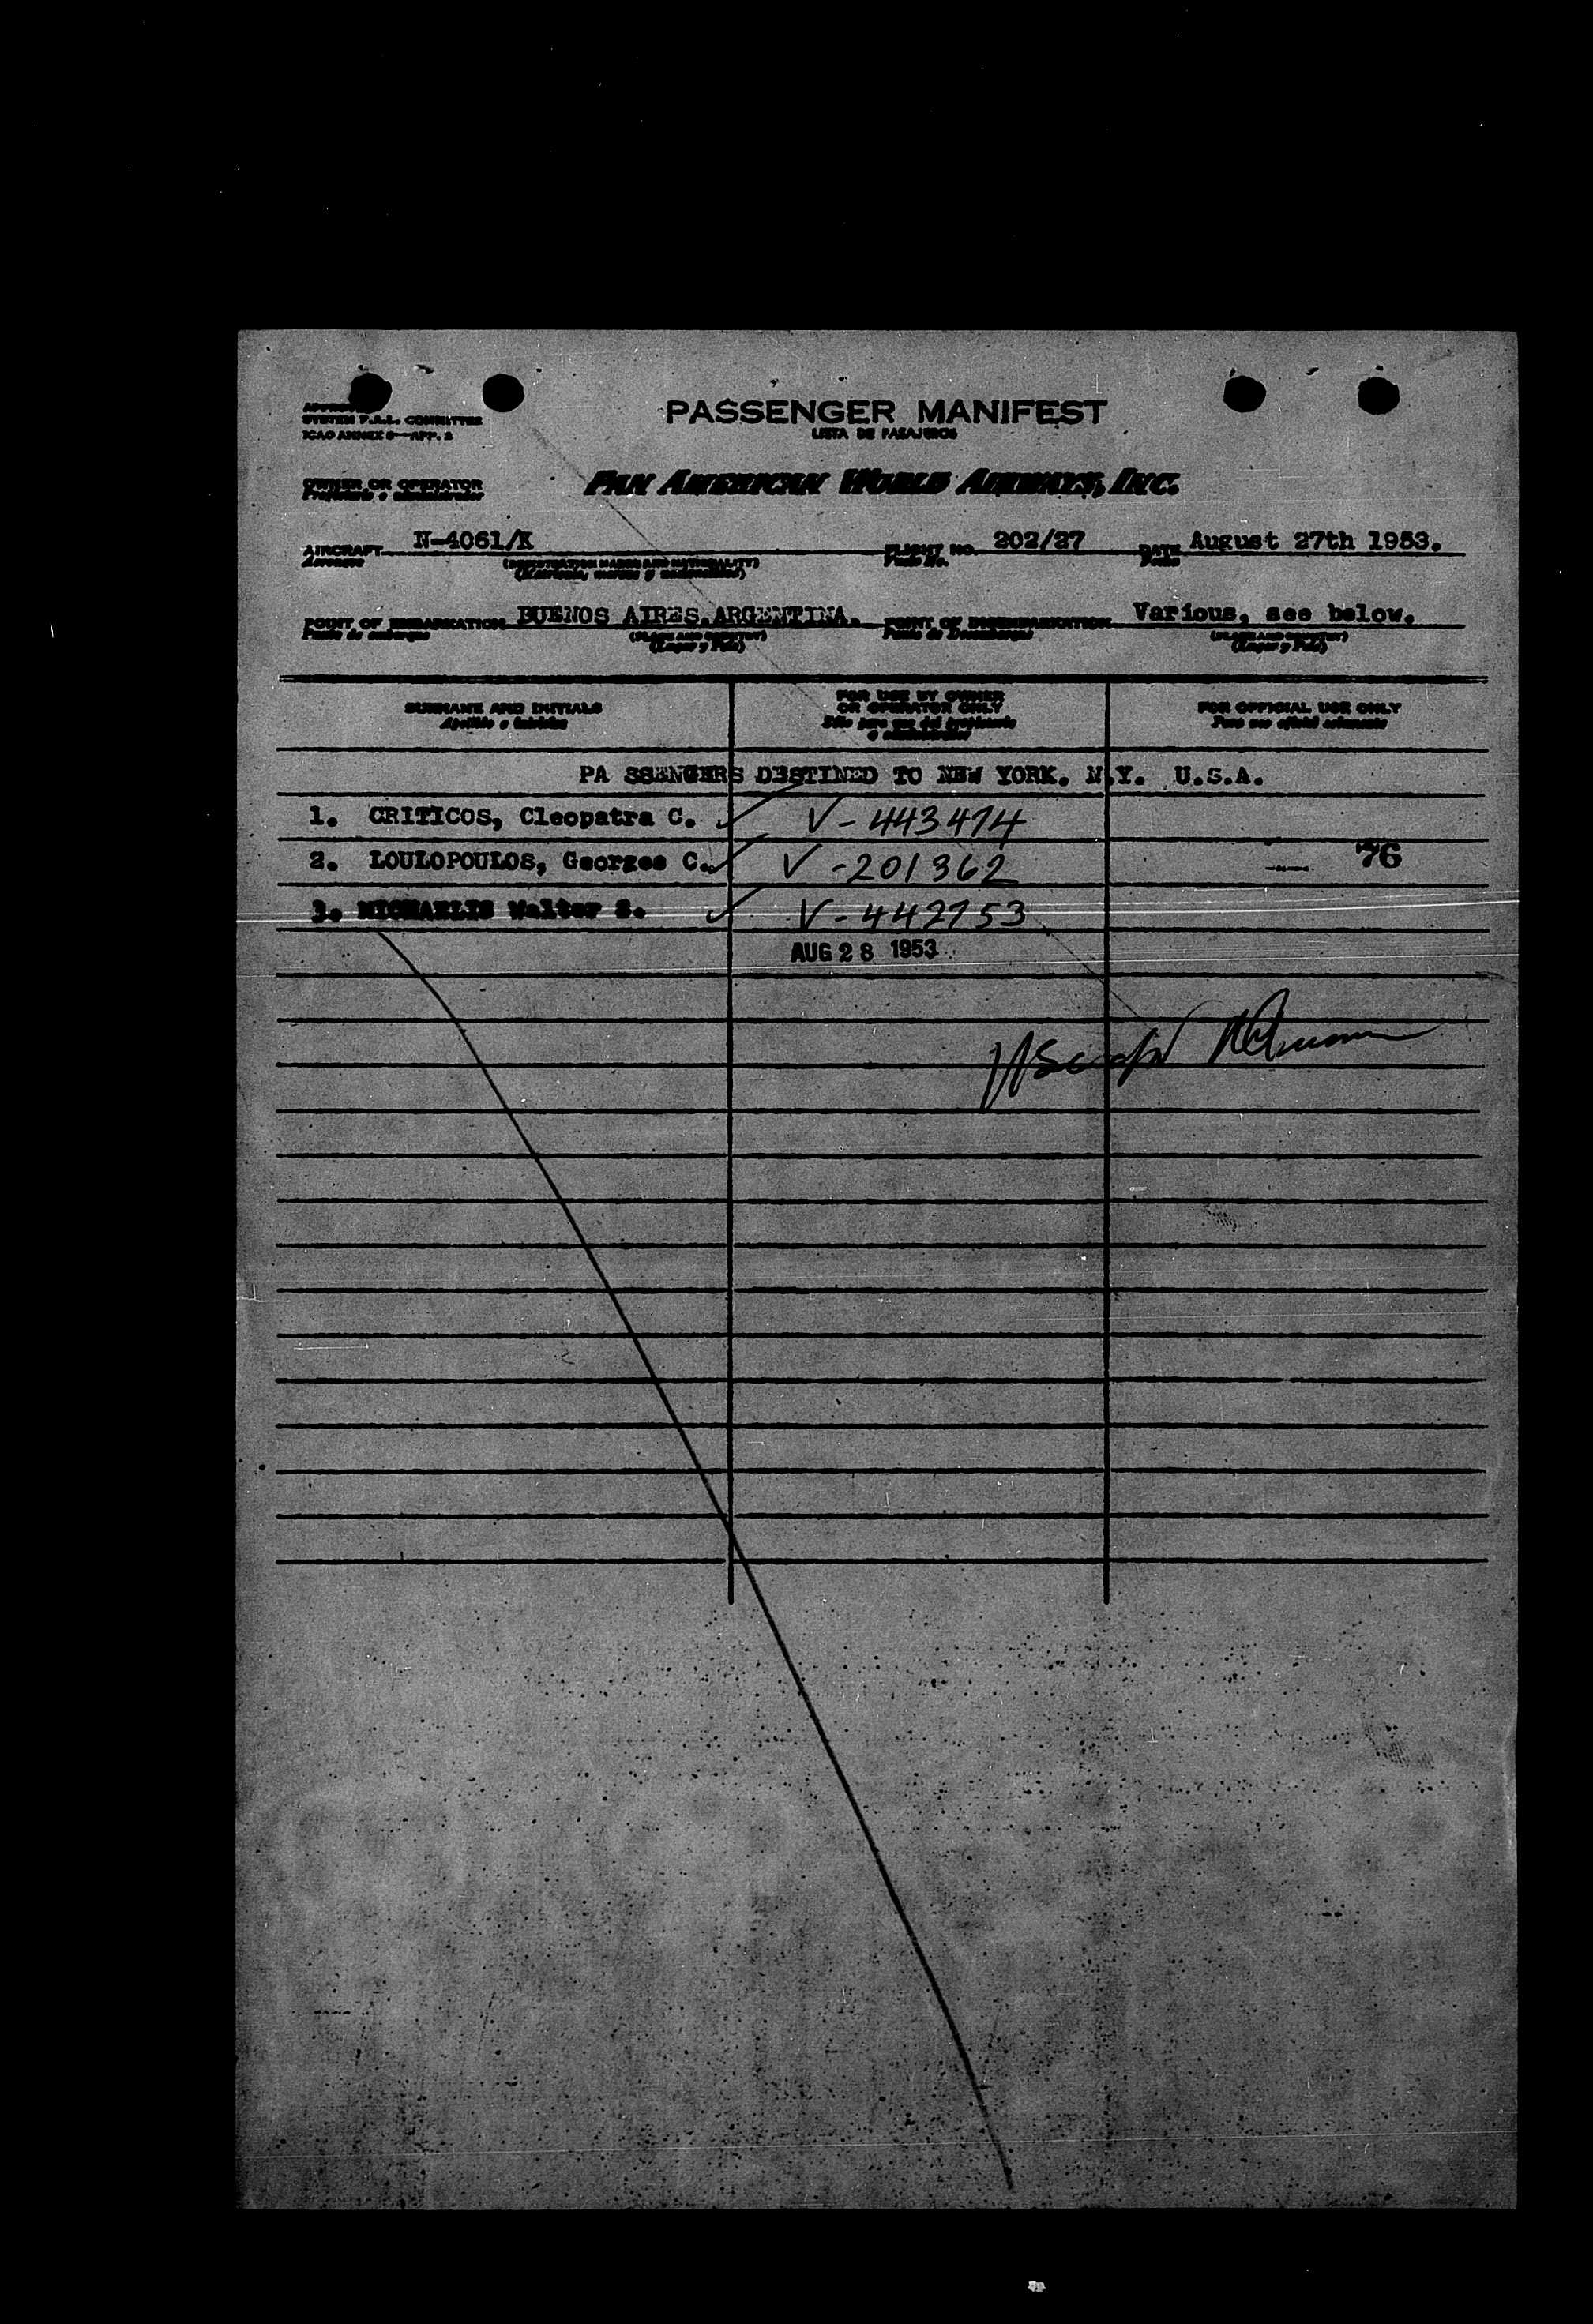 SYSTEM F.A.L. COMMITTEE
ICAO ANNEX 9—APP. 2
PASSENGER MANIFEST
LISTA DE PASAJEROS
OWNER OR OPERATOR
Propietario o administrador
PAN AMERICAN WORLD AIRWAYS, INC.
AIRCRAFT N-4061/K FLIGHT NO. 202/27 DATE August 27th 1953.
(REGISTRATION MARKS AND NATIONALITY)
POINT OF EMBARKATION BUENOS AIRES.ARGENTINA. POINT OF DISEMBARKATION Various, see below.
Punto de embarque (PLACE AND COUNTRY) Punto de Desembarque (PLACE AND COUNTRY)
(Lugar y País) (Lugar y País)
SURNAME AND INITIALS FOR USE BY OWNER OR OPERATOR ONLY FOR OFFICIAL USE ONLY
Apellido e iniciales Para uso oficial solamente
PA SSENGERS DESTINED TO NEW YORK. N.Y. U.S.A.
1. CRITICOS, Cleopatra C. V-443474
2. LOULOPOULOS, Georges C. V-201362 76
3. MICHAELIS Walter S. V-442753
AUG 28 1953